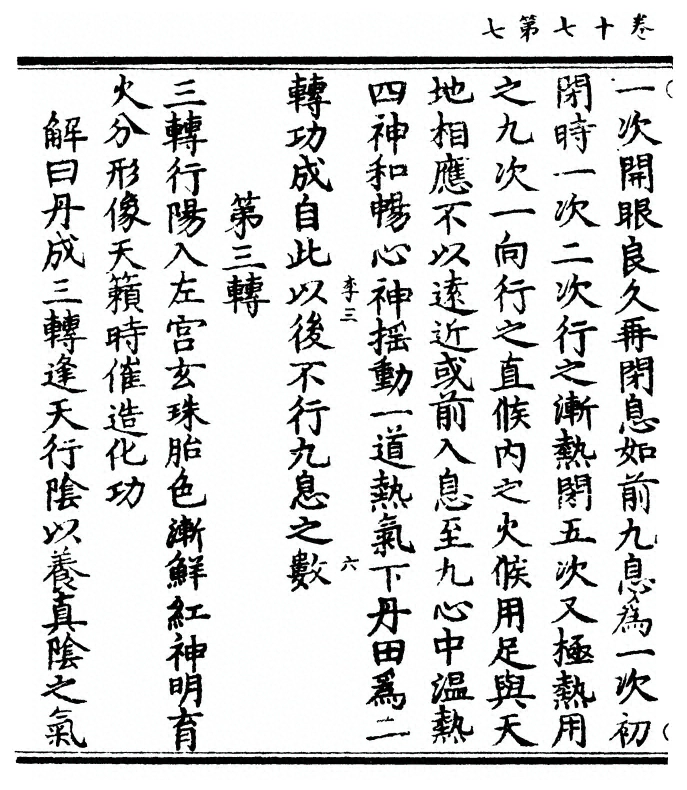 卷十七第七
一次開眼良久再閉息如前九息爲一次初
閉時一次二次行之漸熱閉五次又極熱用
之九次一向行之直候内之火候用足與天
地相應不以遠近或前入息至九心中溫熱
四神和暢心神揺動一道熱氣下丹田爲二
李三 六
轉功成自此以後不行九息之數
第三轉
三轉行陽入左宮玄珠胎色漸鮮紅神明育
火分形像天籟時催造化功
解曰丹成三轉逢天行陰以養真陰之氣